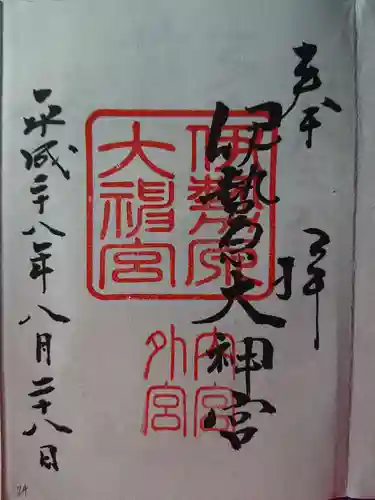 奉拝
伊勢原大神宮
平成二十八年八月二十八日
伊勢原
大神宮
内宮
外宮